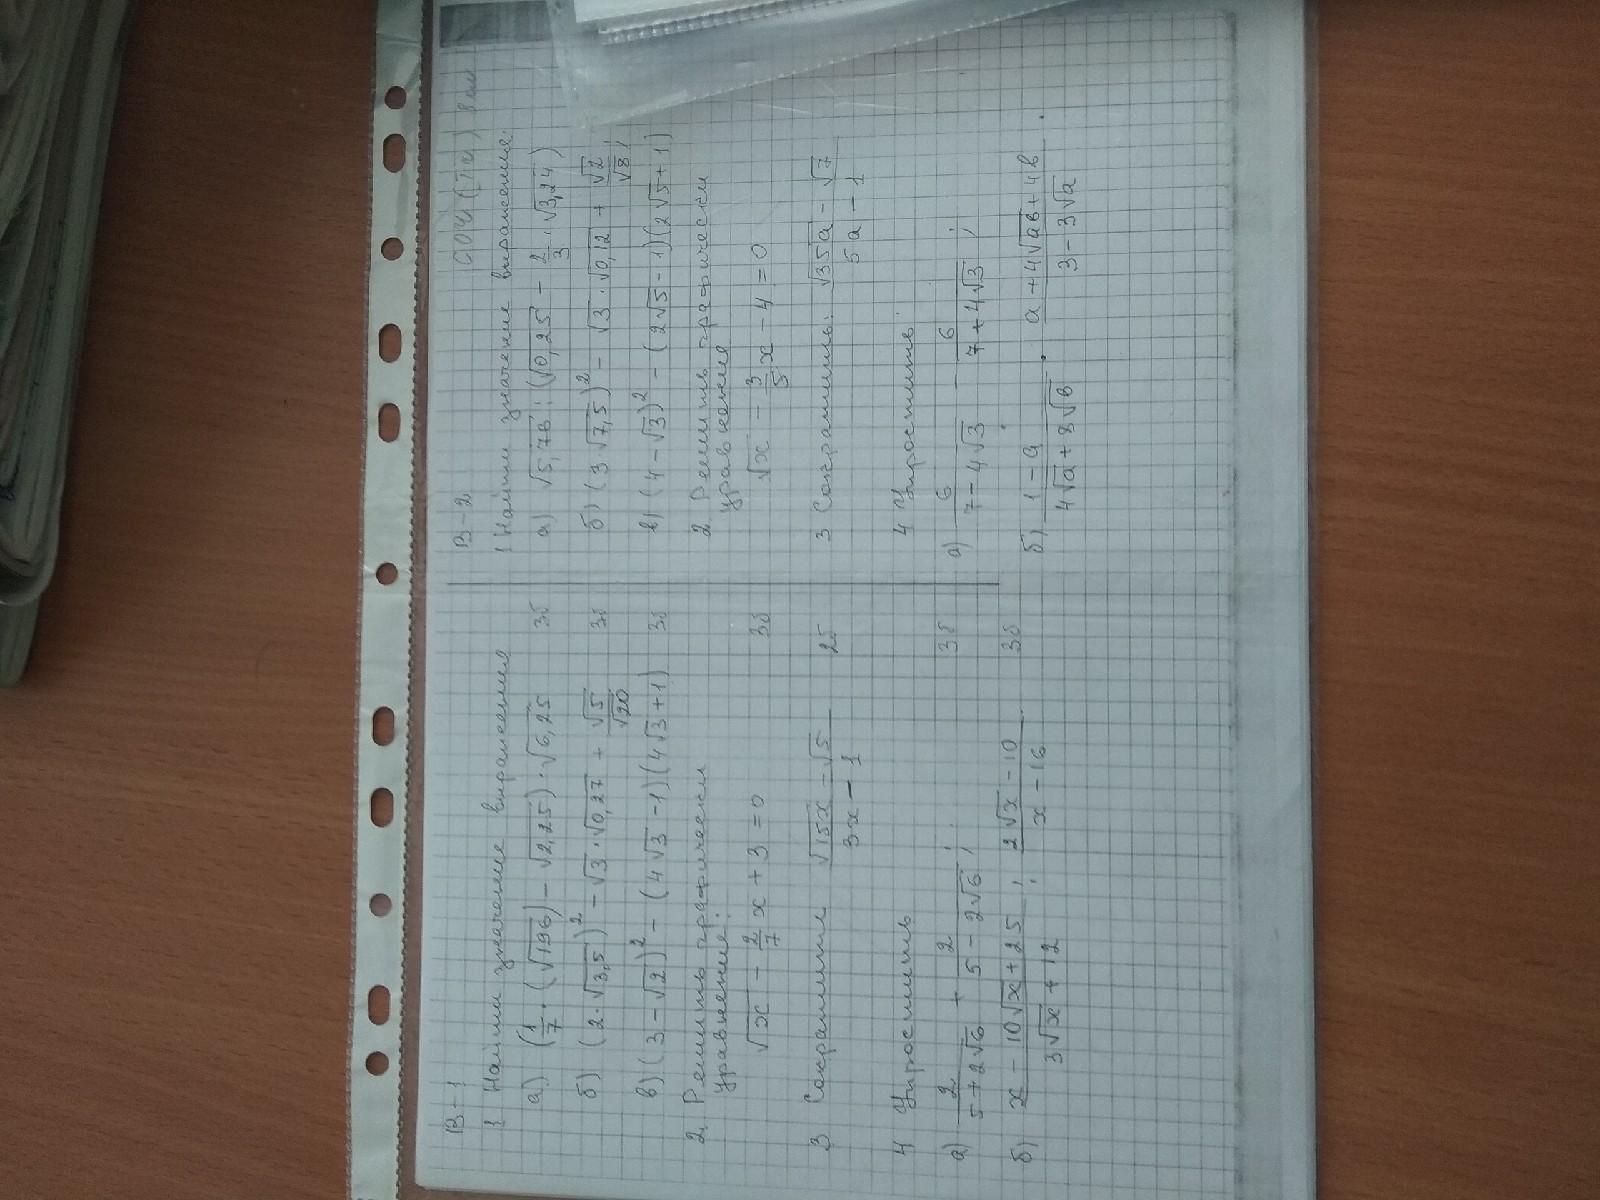 В-1
1 Найти значение выражения
а) (1/7 · (√196) - √2,25) · √6,25 3б
б) (2·√3,5)² - √3·√0,27 + √5/√20 3б
в) (3-√2)² - (4√3-1)(4√3+1) 3б
2. Решить графически
уравнение:
√x - 2/7 x + 3 = 0 3б
3 Сократить (√15x - √5)/(3x - 1) 2б
4 Упростить
а) 2/(5+2√6) + 2/(5-2√6); 3б
б) (x - 10√x + 25)/(3√x + 12) : (2√x - 10)/(x - 16) 3б
В-2
1 Найти значение выражения:
а) √5,76 : (√0,25 - 2/3·√3,24)
б) (3√7,5)² - √3·√0,12 + √2/√8;
в) (4-√3)² - (2√5-1)(2√5+1)
2. Решить графически
уравнение
√x - 3/5 x - 4 = 0
3 Сократить: (√35a - √7)/(5a - 1)
4 Упростить:
а) 6/(7-4√3) - 6/(7+4√3);
б) (1-a)/(4√a+8√b) · (a+4√ab+4b)/(3-3√a).